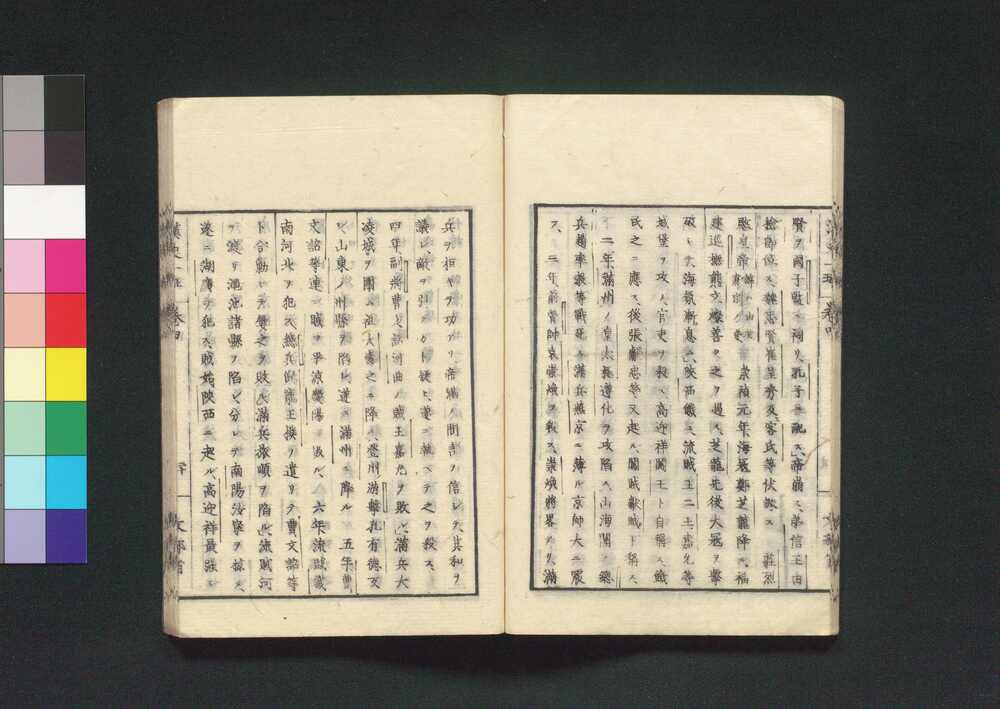 賢ヲ国子監ニ祠リ孔子ニ配ス帝崩ス弟信王由
検即位ス魏忠賢崔呈秀及客氏等伏誅ス 荘烈
愍皇帝 崇禎元年海寇鄭芝龍降ル福
建巡撫熊文燦善ク之ヲ遇ス芝龍先後大寇ヲ撃
破シテ海氛漸息ム陝西饑ス流賊王二王嘉允等
城堡ヲ攻メ官吏ヲ殺ス高迎祥闖王ト自称ス饑
民之ニ應ス後張献忠等又起ル闖賊献賊ト称ス
二年満州ノ皇太極遵化ヲ攻陥ス山海関ノ総
兵趙率教等戦死ス満兵燕京ニ薄ル京師大ニ震
フ 三年前督師袁崇煥ヲ殺ス崇煥将畧アリ満
兵ヲ拒ギテ功アリ帝満人ノ間言ヲ信シテ其和ヲ
議シ敵ヲ引シカト疑ヒ遂ニ執ヘテ之ヲ殺ス
四年副将曹文詔河曲ノ賊王嘉允ヲ敗ル満兵大
凌城ヲ囲ム祖大寿之ニ降ル登州游撃孔有徳叉
シ山東ノ州縣ヲ陥レ遂ニ満州ニ降ル 五年曹
文詔等連ニ賊ヲ平涼慶陽ニ敗ル 六年流賊畿
南河北ヲ犯ス総兵倪寵王樸ヲ遣リテ曹文詔等
ト合勦シテ屡之ヲ敗ル満兵旅順ヲ陥ル流賊河
ヲ渡リ澠池諸縣ヲ陥レ分レテ南陽汝寧ヲ掠メ
遂ニ湖廣ヲ犯ス賊始陝西ニ起ル高迎祥最強シ